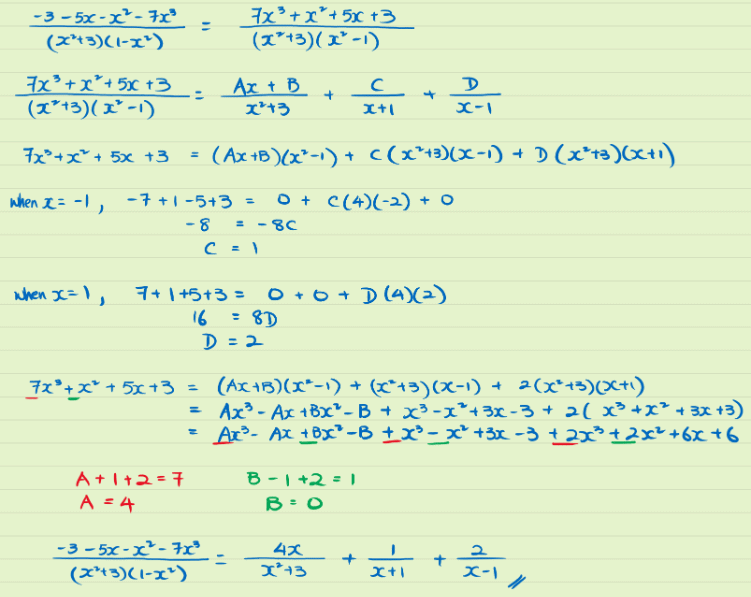 (-3 - 5x - x² - 7x³)/((x²+3)(1-x²)) = (7x³ + x² + 5x + 3)/((x²+3)(x²-1))
(7x³ + x² + 5x + 3)/((x²+3)(x²-1)) = (Ax + B)/(x²+3) + C/(x+1) + D/(x-1)
7x³ + x² + 5x + 3 = (Ax+B)(x²-1) + C(x²+3)(x-1) + D(x²+3)(x+1)
when x = -1, -7 + 1 - 5 + 3 = 0 + C(4)(-2) + 0
-8 = -8C
C = 1
when x = 1, 7 + 1 + 5 + 3 = 0 + 0 + D(4)(2)
16 = 8D
D = 2
7x³ + x² + 5x + 3 = (Ax+B)(x²-1) + (x²+3)(x-1) + 2(x²+3)(x+1)
= Ax³ - Ax + Bx² - B + x³ - x² + 3x - 3 + 2(x³ + x² + 3x + 3)
= Ax³ - Ax + Bx² - B + x³ - x² + 3x - 3 + 2x³ + 2x² + 6x + 6
A + 1 + 2 = 7 B - 1 + 2 = 1
A = 4 B = 0
(-3 - 5x - x² - 7x³)/((x²+3)(1-x²)) = 4x/(x²+3) + 1/(x+1) + 2/(x-1) //